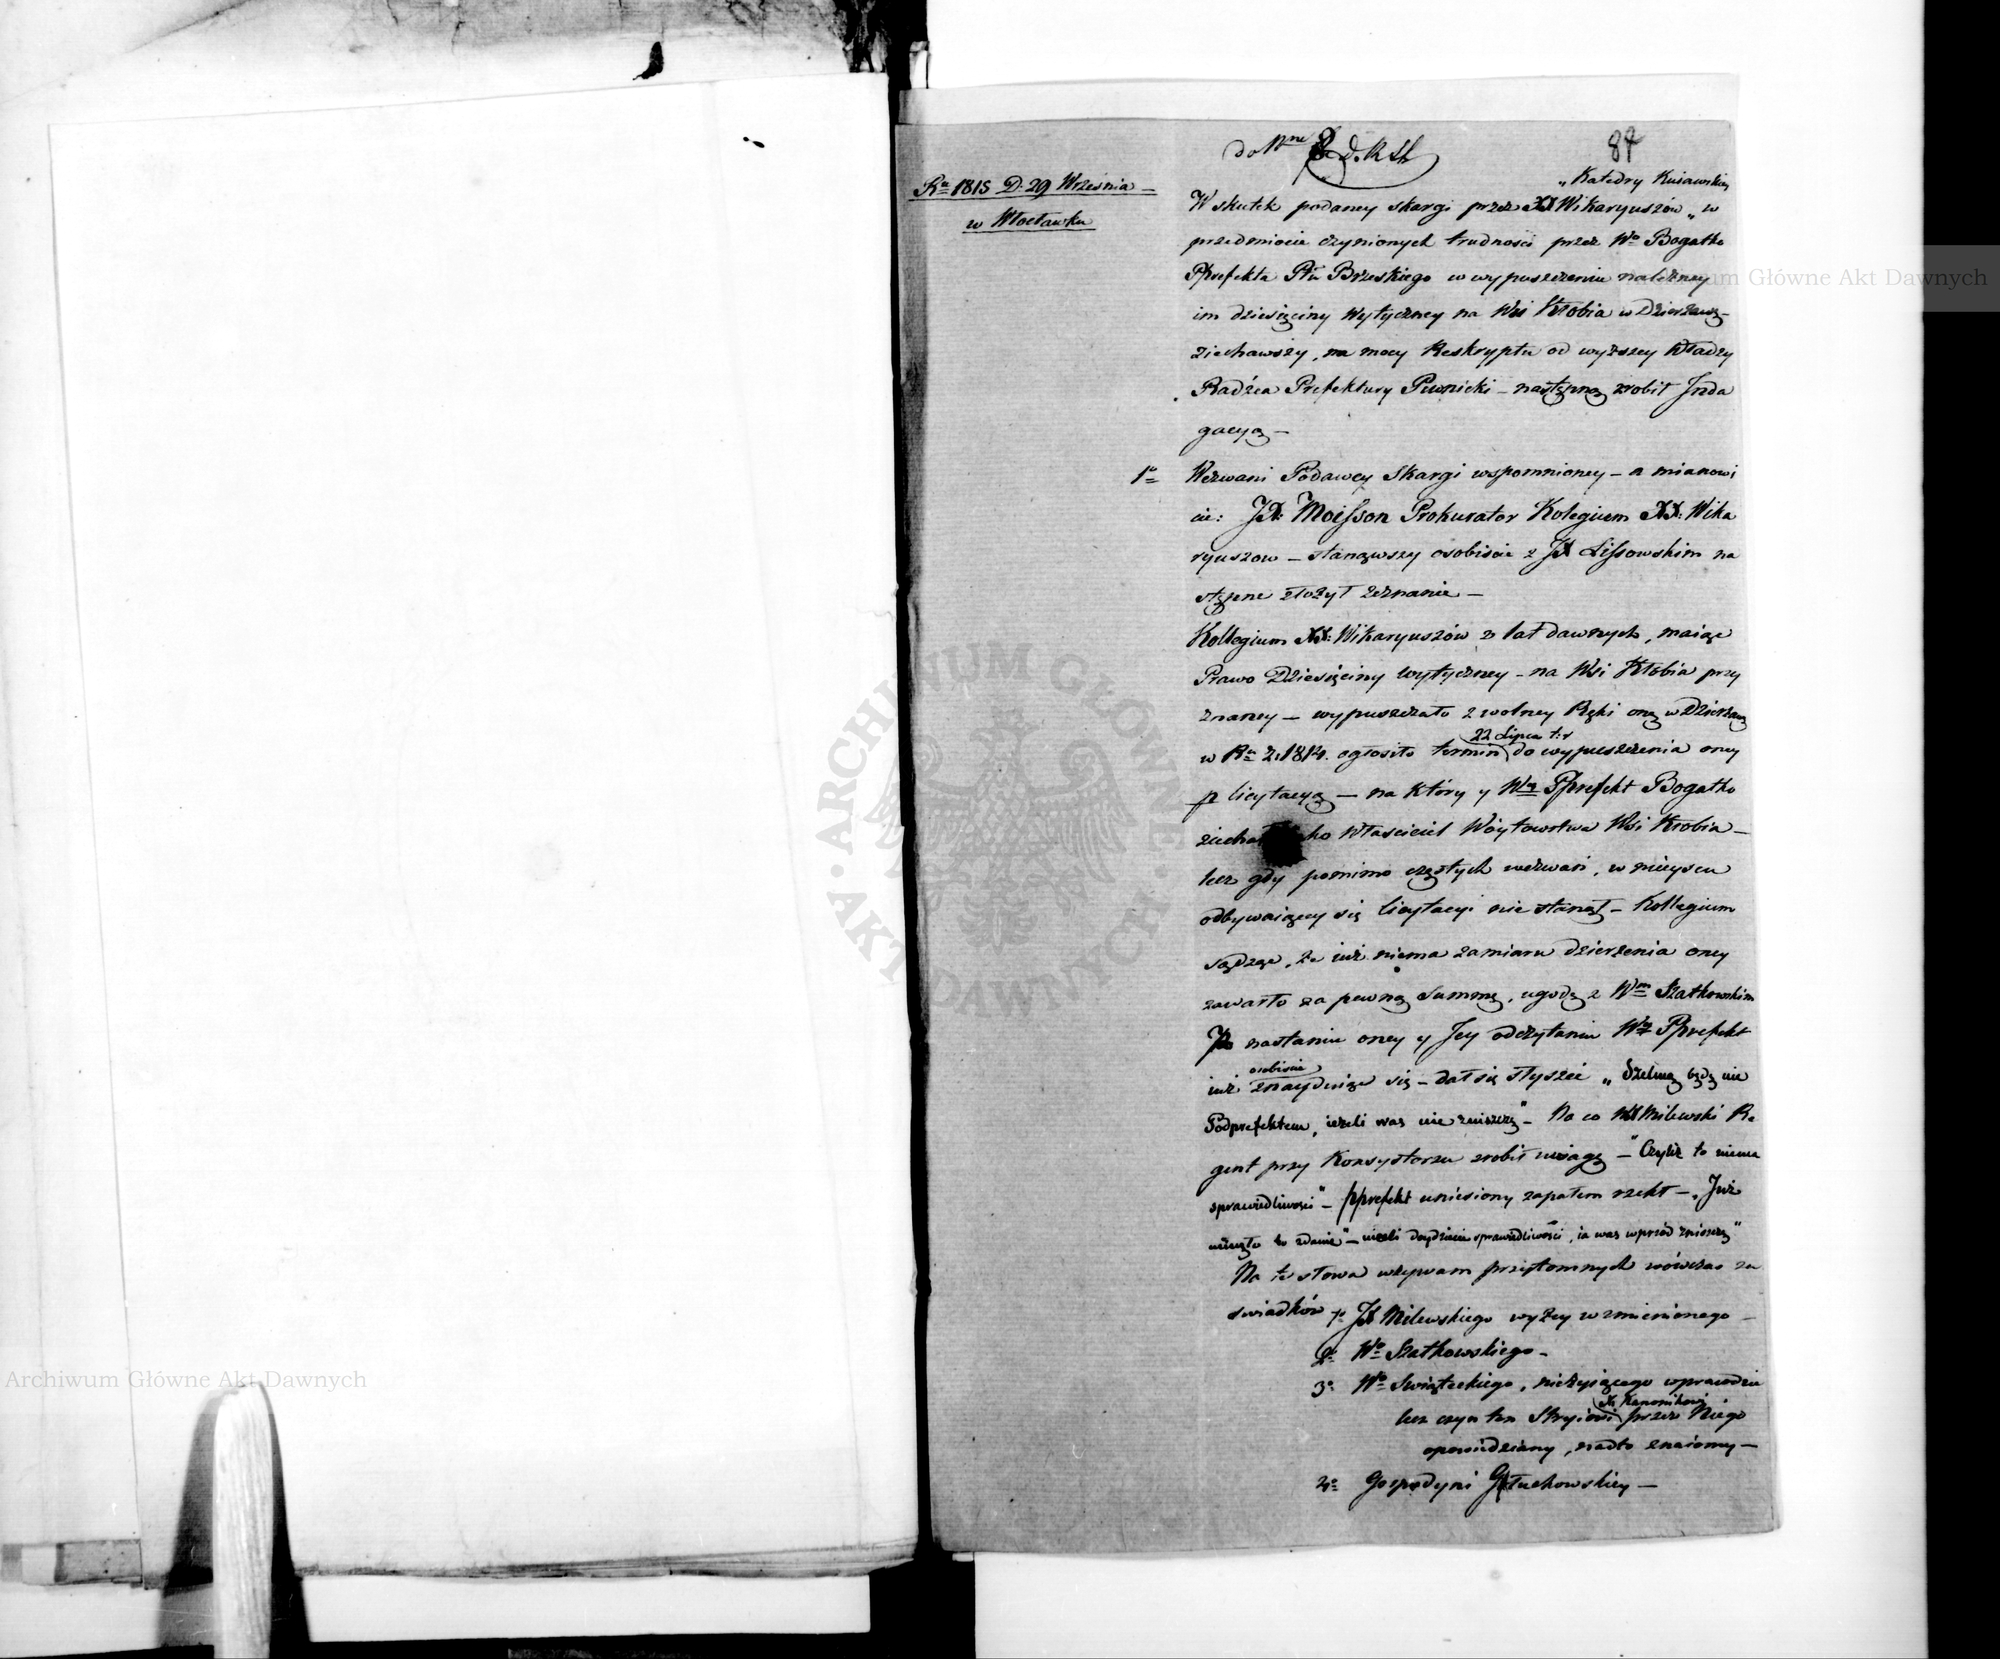 do Nru 2 d. R. Sł.
87
Ru 1815 D: 29 Września —
w Włocławku
„Katedry Kuiawskiey
W skutek podaney skargi przez XX Wikaryuszów „ w
przedmiocie czynionych trudności przez Wo Bogatko
Pprefekta Pttu Brzeskiego w wypuszczeniu należney
im dziesięciny wytyczney na Wsi Kłobia w Dzierżawę —
ziechawszy, na mocy Reskryptu od wyższey Władzy
Radźca Prefektury Piwnicki — następną zrobił Inda
gacyą —
1o Wezwani Podawcy Skargi wspomnioney — a mianowi
cie: JX: Moisson Prokurator Kolegium XX: Wika
ryuszow — stanąwszy osobiscie z JX Lissowskim na
stępne złożył zeznanie —
Kollegium XX: Wikaryuszów z lat dawnych, maiąc
Prawo Dziesięciny wytyczney — na Wsi Kłobia przy
znaney — wypuszczało z wolney Ręki oną w Dzierżawę
22 Lipca t: r
w Ru z: 1814. ogłosiło termin do wypuszczenia oney
p licytacyą — na który y Wny Pprefekt Bogatko
ziechał ko Właściciel Wóytowstwa Wsi Kłobia —
lecz gdy pomimo częstych wezwań, w mieyscu
odbywaiącey się licytacyi nie stanął — Kollegium
sądząc, że iuż niema zamiaru dzierżenia oney
zawarło za pewną Summę, ugodę z Wm Szatkowskim
Po nastaniu oney y Jey odczytaniu Wny Pprefekt
osobiscie
iuż znayduiąc się — dał się słyszeć „Szelmą będę nie
Podprefektem, ieżeli was nie zniszczę" — Na co JX Milewski Re
gent przy Konsystorzu zrobił uwagę — "Czyliż to niema
sprawiedliwości" — Pprefekt uniesiony zapałem rzekł — „Już
minęło to zdanie" — nieżli doydziecie sprawiedliwości, ia was wprzód zniszczę"
Na te słowa wzywam przytomnych wówczas za
swiadków 1o JX Milewskiego wyżey wzmienionego —
2o Wo Szatkowskiego —
3o Wo Swiąteckiego, nieżyiącego wprawdzie
X. Kanonikowi
lecz czyn ten Stryiowi przez Niego
opowiedziany, nadto znaiomy —
4o Gospodyni Głuchowskiey —
Archiwum Główne Akt Dawnych
ARCHIWUM GŁÓWNE AKT DAWNYCH
Archiwum Główne Akt Dawnych